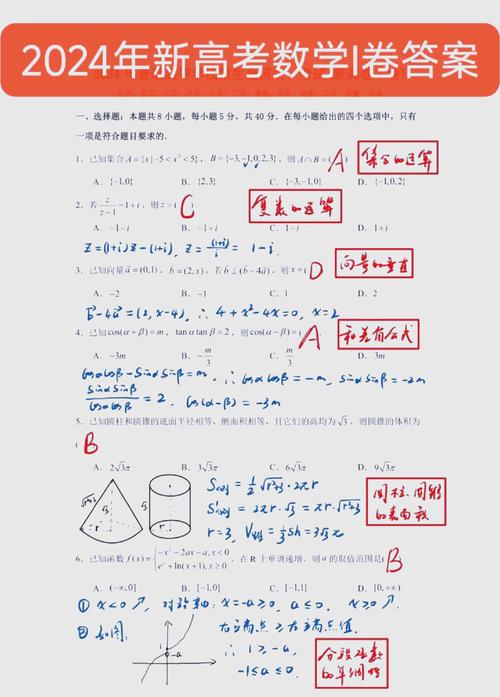 2024年新高考数学I卷答案
一、选择题:本题共8小题,每小题5分,共40分.在每小题给出的四个选项中,只有
一项是符合题目要求的.
1. 已知集合A={x|-5<x³<5},B={-3,-1,0,2,3},则A∩B=( A 集合的运算
A. {-1,0} B. {2,3} C. {-3,-1,0} D. {-1,0,2}
2. 若z/(z-1)=1+i,则z=( C 复数的运算
A. -1-i B. -1+i C. 1-i D. 1+i
z=(1+i)z-(1+i), z=(1+i)/i=1-i.
3. 已知向量a=(0,1),b=(2,x),若b⊥(b-4a),则x=( D 向量的垂直
A. -2 B. -1 C. 1 D. 2
b-4a=(2,x-4), ∴4+x²-4x=0, x=2
4. 已知cos(α+β)=m,tanαtanβ=2,则cos(α-β)=( A 和差角公式
A. -3m B. -m/3 C. m/3 D. 3m
cosαcosβ-sinαsinβ=m. ∴cosαcosβ=-m, sinαsinβ=-2m
sinαsinβ/cosαcosβ=2. cos(α-β)=-3m
5. 已知圆柱和圆锥的底面半径相等,侧面积相等,且它们的高均为√3,则圆锥的体积为
( B
A. 2√3π B. 3√3π C. 6√3π D. 9√3π
√r²+3 √3 r
√3 r
=1/2√r²+3·2πr
=2πr·√3=πr·√r²+3
r=3, =1/3Sh=3√3π
圆柱、圆锥
的表面积
6. 已知函数f(x)={-x²-2ax-a,x<0 eˣ+ln(x+1),x≥0,在R上单调递增,则a的取值范围是( B
A. (-∞,0] B. [-1,0] C. [-1,1] D. [0,+∞)
① x<0↗, 对称轴:x=-a≥0, a≤0. x≥0↗.
② 如图: 右端点≥左端点值.
1 -a
∴1≥-a,
-1≤a≤0
分段函数
的单调性